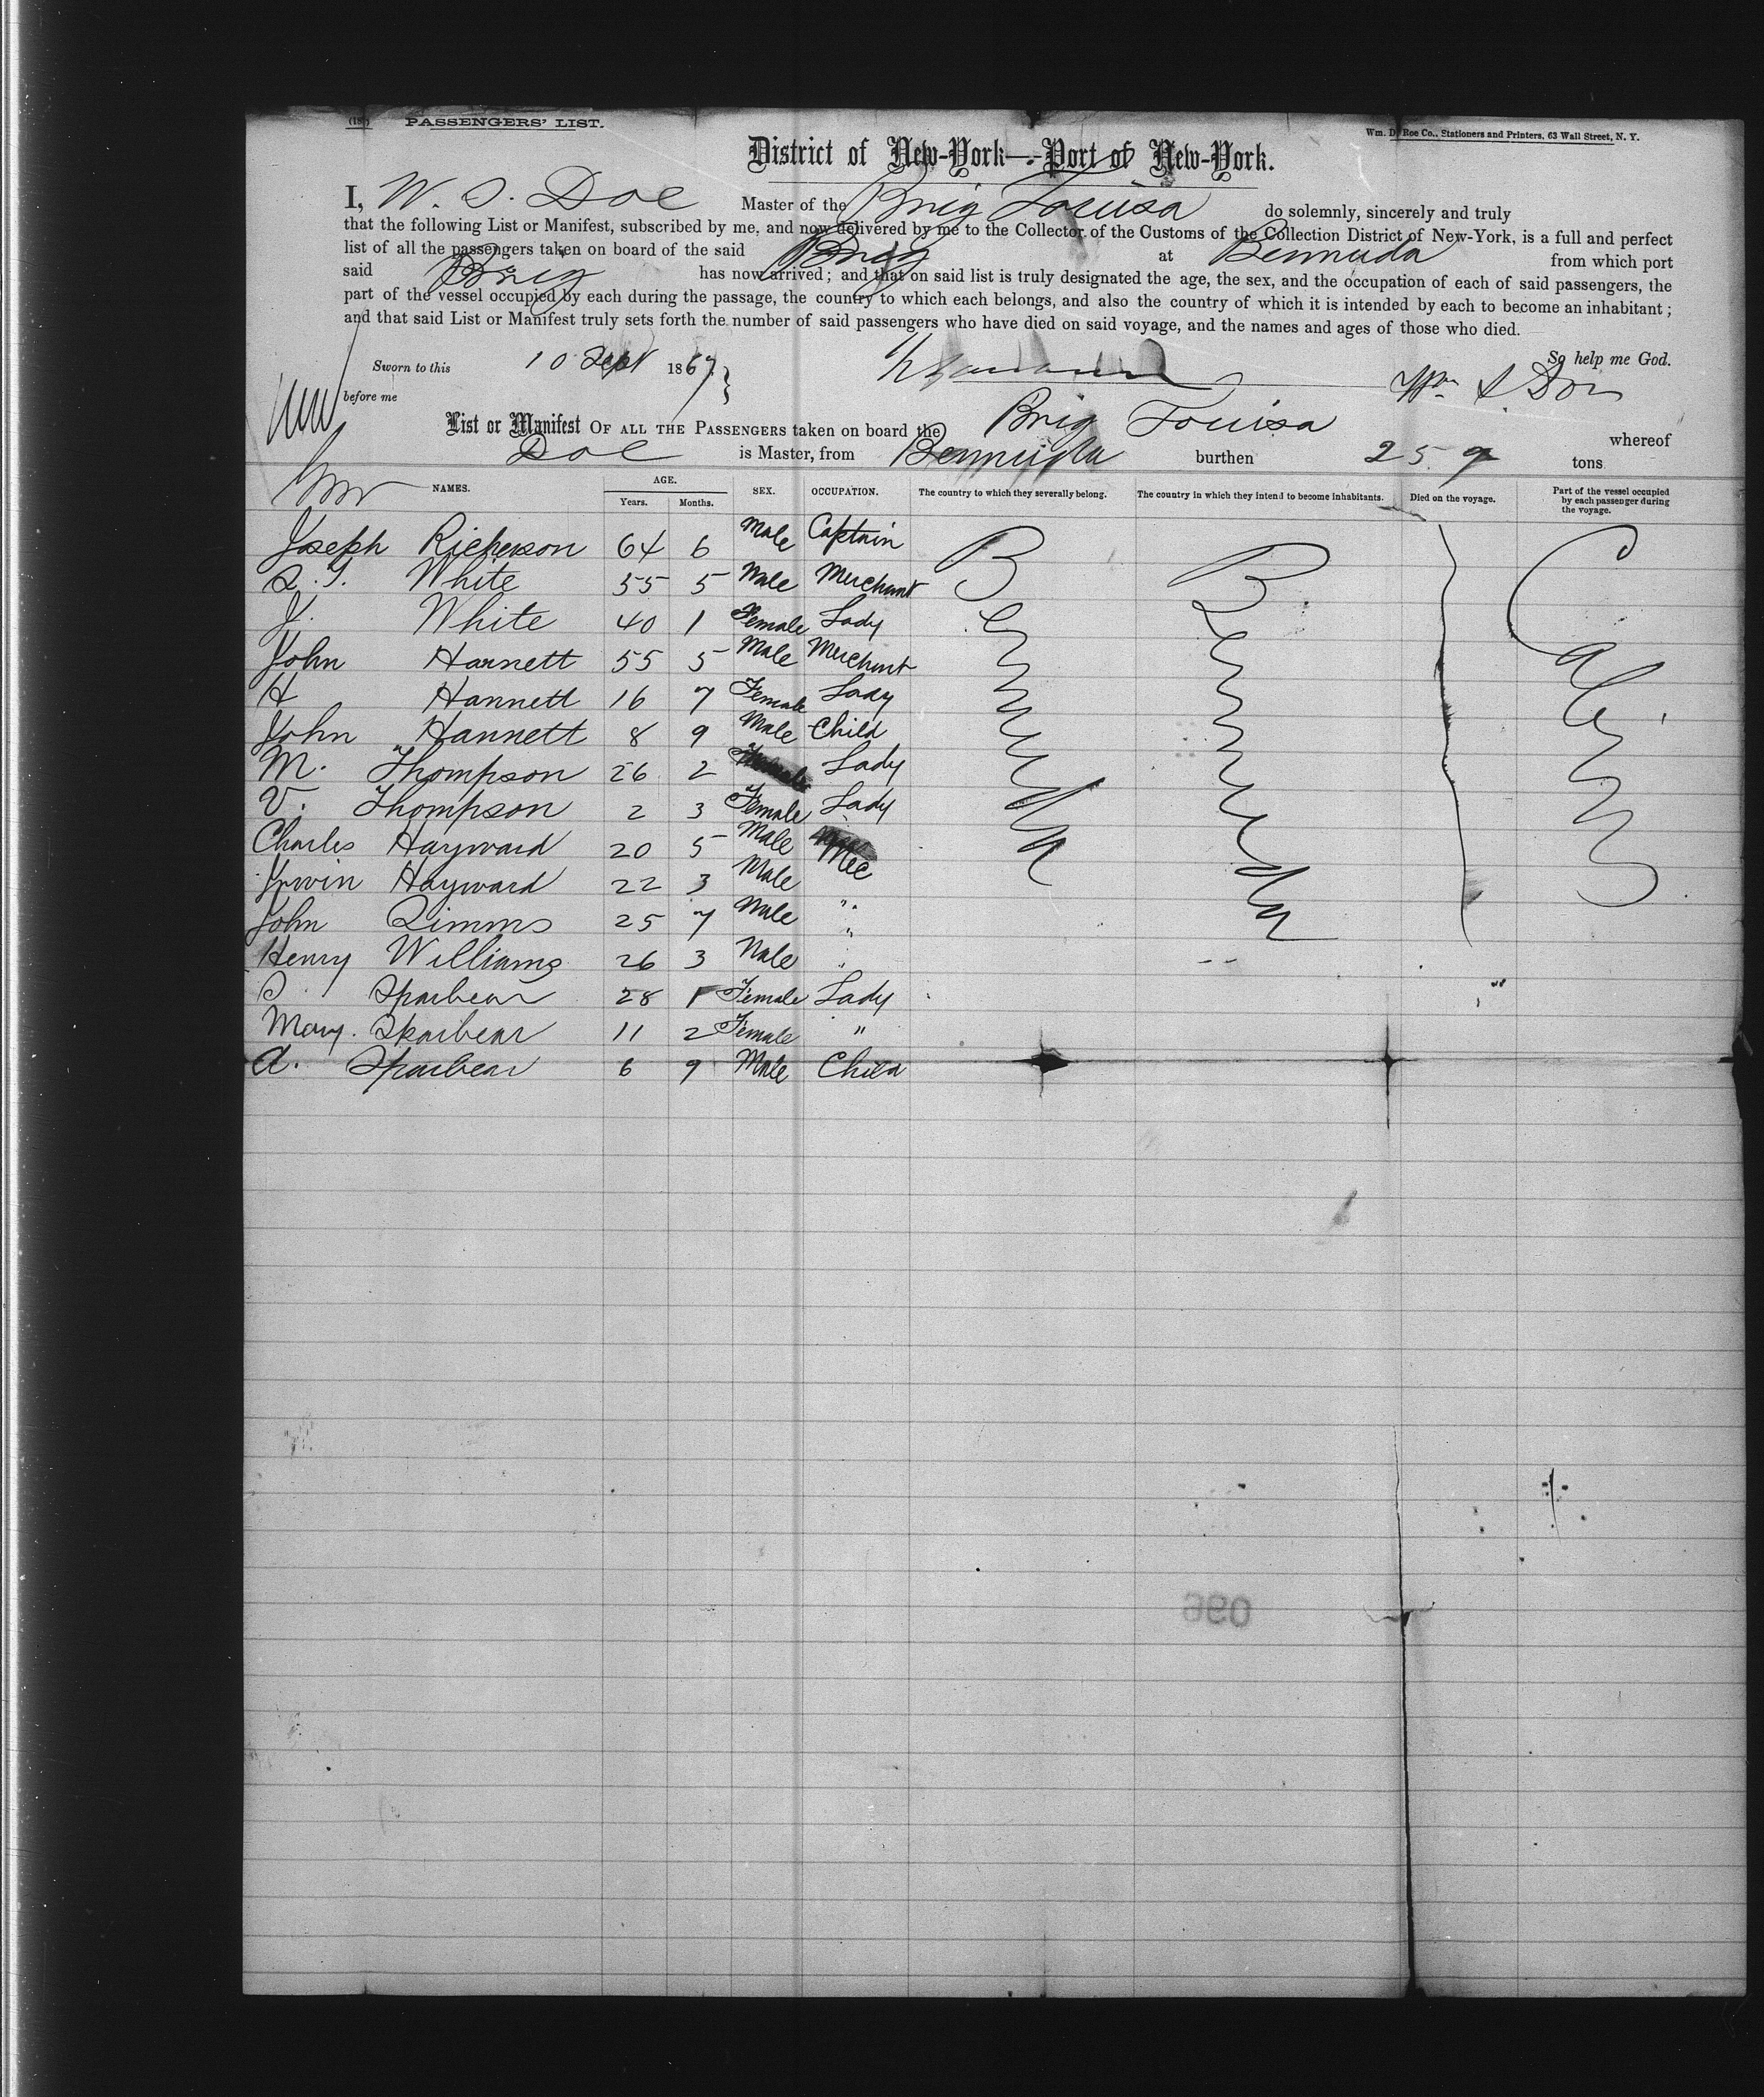 PASSENGERS' LIST.
Wm. D. Roe Co., Stationers and Printers, 63 Wall Street, N. Y.
District of New-York—Port of New-York.
I, W. S. Doe Master of the Brig Louisa do solemnly, sincerely and truly
that the following List or Manifest, subscribed by me, and now delivered by me to the Collector of the Customs of the Collection District of New-York, is a full and perfect
list of all the passengers taken on board of the said Brig at Bermuda from which port
said Brig has now arrived; and that on said list is truly designated the age, the sex, and the occupation of each of said passengers, the
part of the vessel occupied by each during the passage, the country to which each belongs, and also the country of which it is intended by each to become an inhabitant;
and that said List or Manifest truly sets forth the number of said passengers who have died on said voyage, and the names and ages of those who died.
So help me God.
Sworn to this 10 Sept 1867
before me
Wm S Doe
List or Manifest OF ALL THE PASSENGERS taken on board the Brig Louisa whereof
Doe is Master, from Bermuda burthen 259 tons
NAMES. AGE. Years. Months. SEX. OCCUPATION. The country to which they severally belong. The country in which they intend to become inhabitants. Died on the voyage. Part of the vessel occupied by each passenger during the voyage.
Joseph Richerson 64 6 Male Captain Bermuda Bermuda Cabin
S. T. White 55 5 Male Merchant
J. White 40 1 Female Lady
John Harnett 55 5 Male Merchant
H Hannett 16 7 Female Lady
John Hannett 8 9 Male Child
M. Thompson 26 2 Lady
V. Thompson 2 3 Female Lady
Charles Hayward 20 5 Male Mec
Irwin Hayward 22 3 Male
John Simms 25 7 Male "
Henry Williams 26 3 Male "
S Sparbear 28 1 Female Lady
Mary. Sparbear 11 2 Female "
A. Sparbear 6 9 Male Child
096